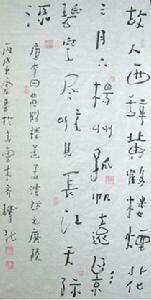 故人西辭黃鶴樓烟花
三月下揚州孤帆遠影
碧空盡唯見長江天際
流
唐李白黃鶴樓送孟浩然之廣陵